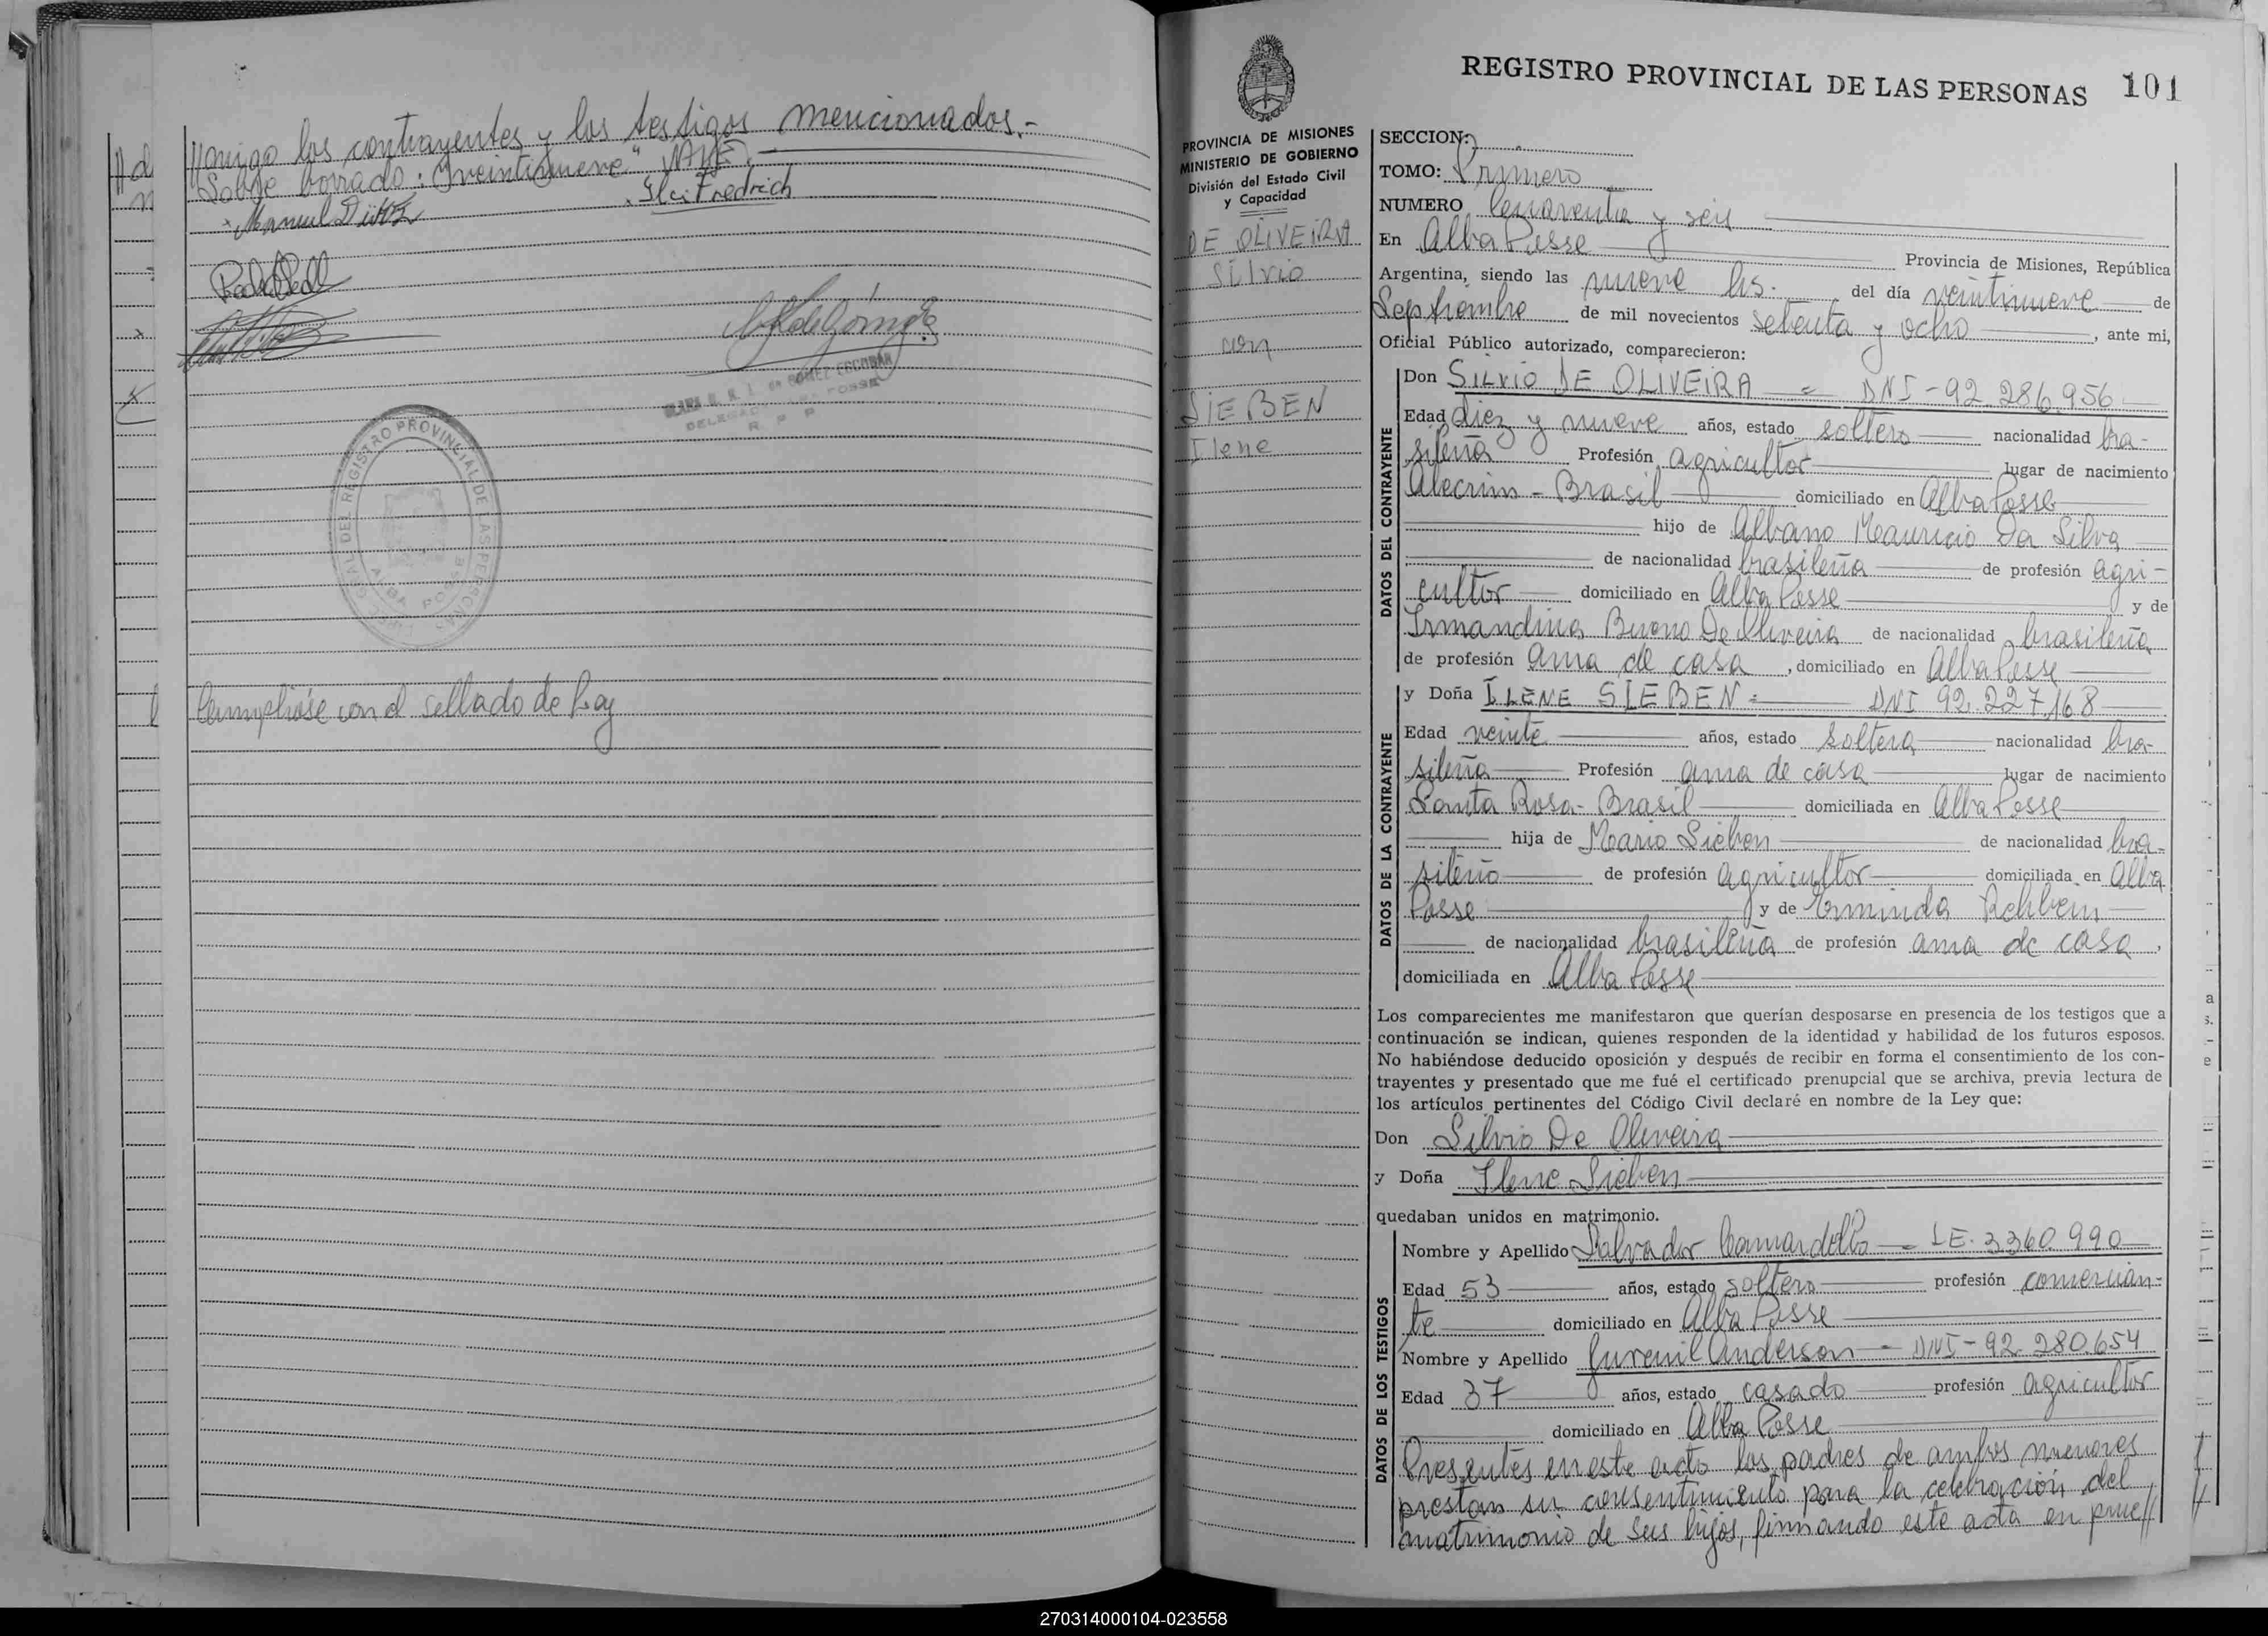 //migo los contrayentes y los testigos mencionados.-
Sobre borrado: "veintinueve" VALE.
Ilci Fredrich
Cumplióse con el sellado de Ley
REGISTRO PROVINCIAL DE LAS PERSONAS 101
PROVINCIA DE MISIONES
MINISTERIO DE GOBIERNO
División del Estado Civil
y Capacidad
DE OLIVEIRA
Silvio
con
SIEBEN
Ilene
SECCION:
TOMO: Primero
NUMERO Cuarenta y seis
En Alba Posse Provincia de Misiones, República
Argentina, siendo las nueve hs. del día veintinueve de
Septiembre de mil novecientos setenta y ocho, ante mi,
Oficial Público autorizado, comparecieron:
DATOS DEL CONTRAYENTE
Don SILVIO DE OLIVEIRA = DNI-92.286.956
Edad diez y nueve años, estado soltero nacionalidad bra-
sileña Profesión agricultor lugar de nacimiento
Alecrim - Brasil domiciliado en Alba Posse
hijo de Albano Mauricio Da Silva
de nacionalidad brasileña de profesión agri-
cultor domiciliado en Alba Posse y de
Irmandina Bueno De Oliveira de nacionalidad brasileña
de profesión ama de casa, domiciliado en Alba Posse
DATOS DE LA CONTRAYENTE
y Doña ILENE SIEBEN = DNI 92.227.168
Edad veinte años, estado soltera nacionalidad bra-
sileña Profesión ama de casa lugar de nacimiento
Santa Rosa - Brasil domiciliada en Alba Posse
hija de Mario Sieben de nacionalidad bra-
sileño de profesión agricultor domiciliada en Alba
Posse y de Erminda Rehbein
de nacionalidad brasileña de profesión ama de casa,
domiciliada en Alba Posse
Los comparecientes me manifestaron que querían desposarse en presencia de los testigos que a
continuación se indican, quienes responden de la identidad y habilidad de los futuros esposos.
No habiéndose deducido oposición y después de recibir en forma el consentimiento de los con-
trayentes y presentado que me fué el certificado prenupcial que se archiva, previa lectura de
los artículos pertinentes del Código Civil declaré en nombre de la Ley que:
Don Silvio De Oliveira
y Doña Ilene Sieben
quedaban unidos en matrimonio.
DATOS DE LOS TESTIGOS
Nombre y Apellido Salvador Camardello - LE. 3360.990
Edad 53 años, estado soltero profesión comercian-
te domiciliado en Alba Posse
Nombre y Apellido Jurenil Anderson - DNI-92.280.654
Edad 37 años, estado casado profesión agricultor
domiciliado en Alba Posse
Presentes en este acto los padres de ambos menores
prestan su consentimiento para la celebración del
matrimonio de sus hijos, firmando este acta en prue//
270314000104-023558